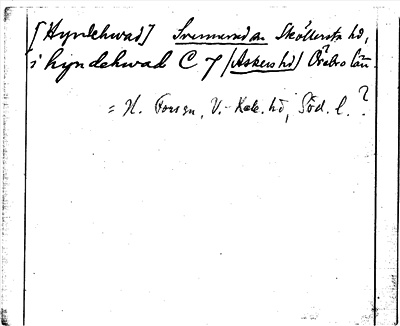 [Hyndehwad] Svennevad sn Sköllersta hd,
i hyndehwad C 7 (Askers hd) Örebro län.
= N. Forsen, V.-Rek. hd, Söd. l. ?